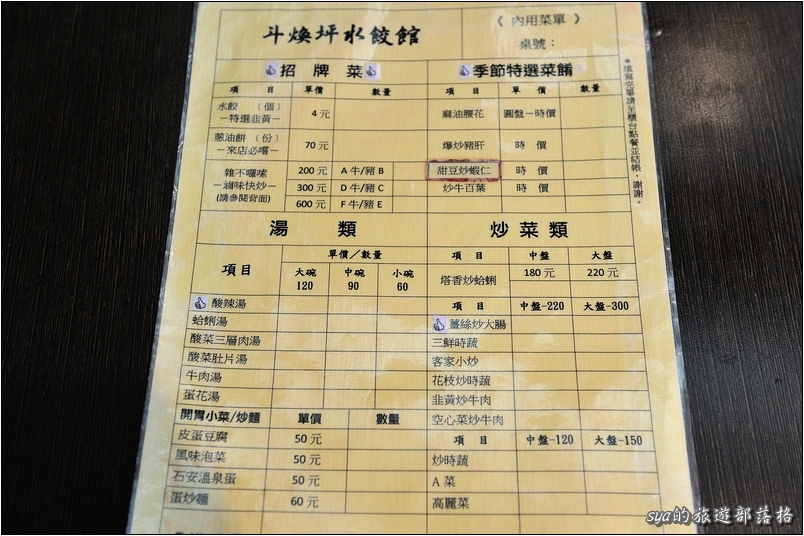 斗煥坪水餃館
《 內用菜單 》
桌號：
*填寫完畢請至櫃台點餐並結帳，謝謝。
招 牌 菜
項 目 單價 數量
水餃 （個） 4 元
－特選韭黃－
蔥油餅（份） 70 元
－來店必嚐－
雜不囉嗦
－滷味快炒－
(請參閱背面)
200 元 A 牛/豬 B
300 元 D 牛/豬 C
600 元 F 牛/豬 E
季節特選菜餚
項 目 單價 數量
麻油腰花 圓盤－時價
爆炒豬肝 時 價
甜豆炒蝦仁 時 價
炒牛百葉 時 價
湯 類
項目 單價／數量
大碗 中碗 小碗
120 90 60
酸辣湯
蛤蜊湯
酸菜三層肉湯
酸菜肚片湯
牛肉湯
蛋花湯
開胃小菜/炒麵 單價 數量
皮蛋豆腐 50 元
風味泡菜 50 元
石安溫泉蛋 50 元
蛋炒麵 60 元
炒 菜 類
項 目 中盤 大盤
塔香炒蛤蜊 180 元 220 元
項 目 中盤-220 大盤-300
薑絲炒大腸
三鮮時蔬
客家小炒
花枝炒時蔬
韭黃炒牛肉
空心菜炒牛肉
項 目 中盤-120 大盤-150
炒時蔬
A 菜
高麗菜
sya的旅遊部落格